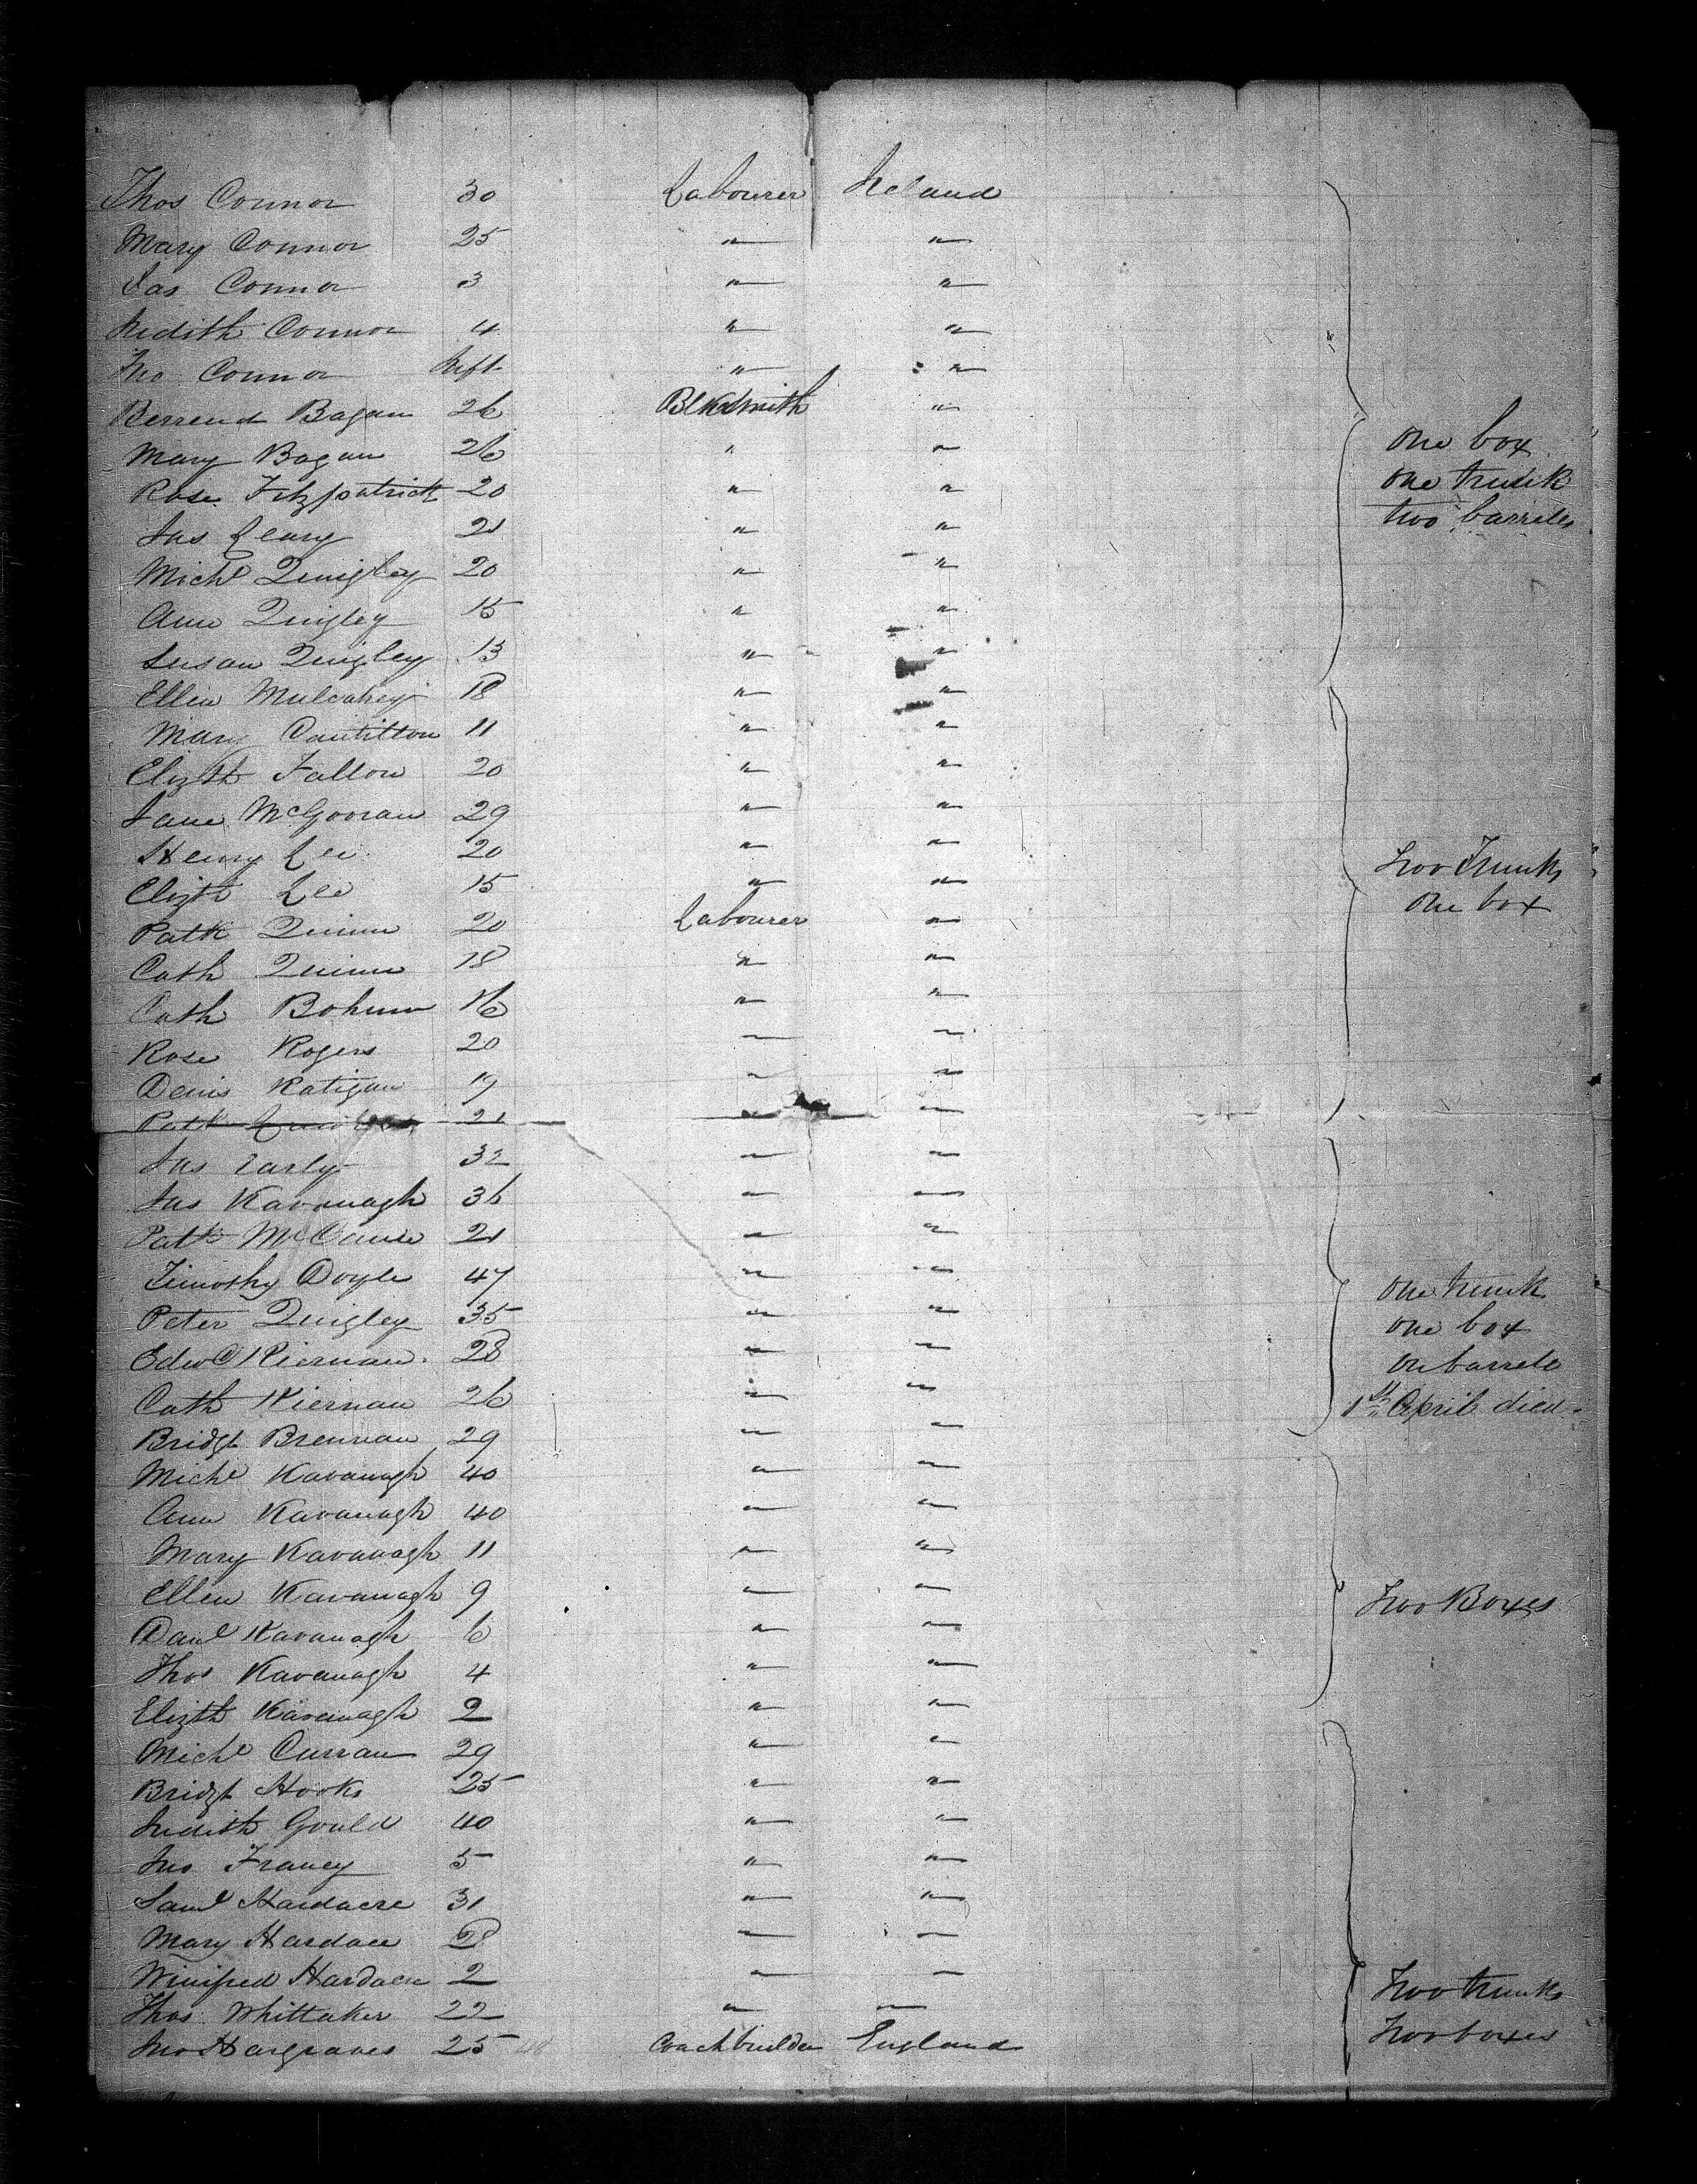 Thos Connor 30 Labourer Ireland
Mary Connor 25 " "
Jas Connor 3 " "
Judith Connor 4 " "
Jno Connor Inft " "
Bernard Bagan 26 Blksmith "
Mary Bagan 26 " " one box
Rose Fitzpatrick 20 " " one trunk
Jas Leary 21 " " two barrels
Michl Quigley 20 " "
Ann Quigley 15 " "
Susan Quigley 13 " "
Ellen Mulcahey 18 " "
Mary Cantitton 11 " "
Elizth Fallon 20 " "
Jane McGowran 29 " "
Henry Lee 20 " " Two Trunks
Elizth Lee 15 " " One box
Patk Quinn 20 Labourer "
Cath Quinn 18 " "
Cath Bohunn 16 " "
Rose Rogers 20 " "
Denis Ratigan 19 " "
Patk 21 " "
Jas Early 32 " "
Jas Kavanagh 36 " "
Patk McCanse 21 " "
Timothy Doyle 47 " "
Peter Quigley 35 " " one trunk
Edwd Kiernan 28 " " one box
on barrele
Cath Kiernan 26 " " 1st April died.
Bridgt Brennan 29 " "
Michl Kavanagh 40 " "
Ann Kavanagh 40 " "
Mary Kavanagh 11 " "
Ellen Kavanagh 9 " " Two Boxes
Danl Kavanagh 6 " "
Thos Kavanagh 4 " "
Elizth Kavanagh 2 " "
Michl Curran 29 " "
Bridgt Hooks 25 " "
Judith Gould 40 " "
Jno Franey 5 " "
Saml Hardacre 31 " "
Mary Hardace 28 " "
Winifred Hardacre 2 " " Two trunks
Thos Whittaker 22 " "
Jno Hargraves 25 48 Coachbuilder England Two boxes